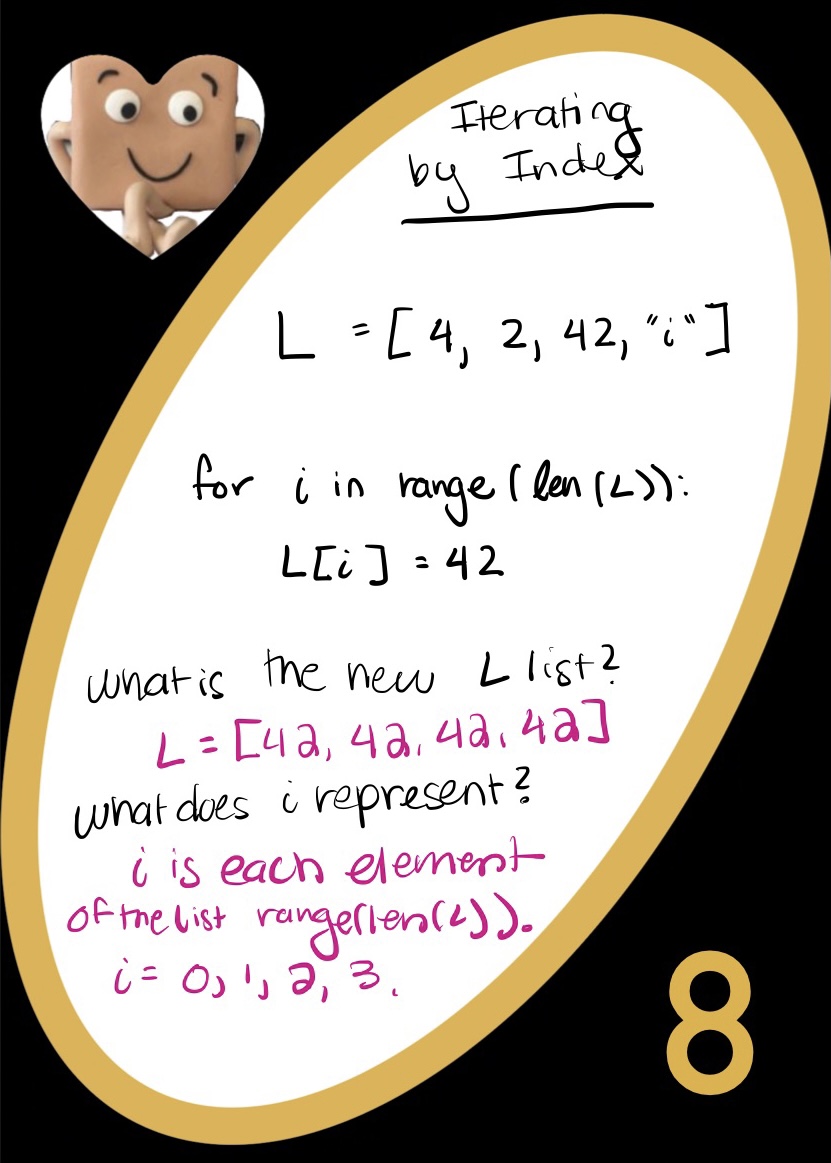 Iterating
by Index
L = [4, 2, 42, "i"]
for i in range(len(L)):
L[i] = 42
what is the new L list?
L = [42, 42, 42, 42]
what does i represent?
i is each element
of the list range(len(L)).
i = 0, 1, 2, 3.
8